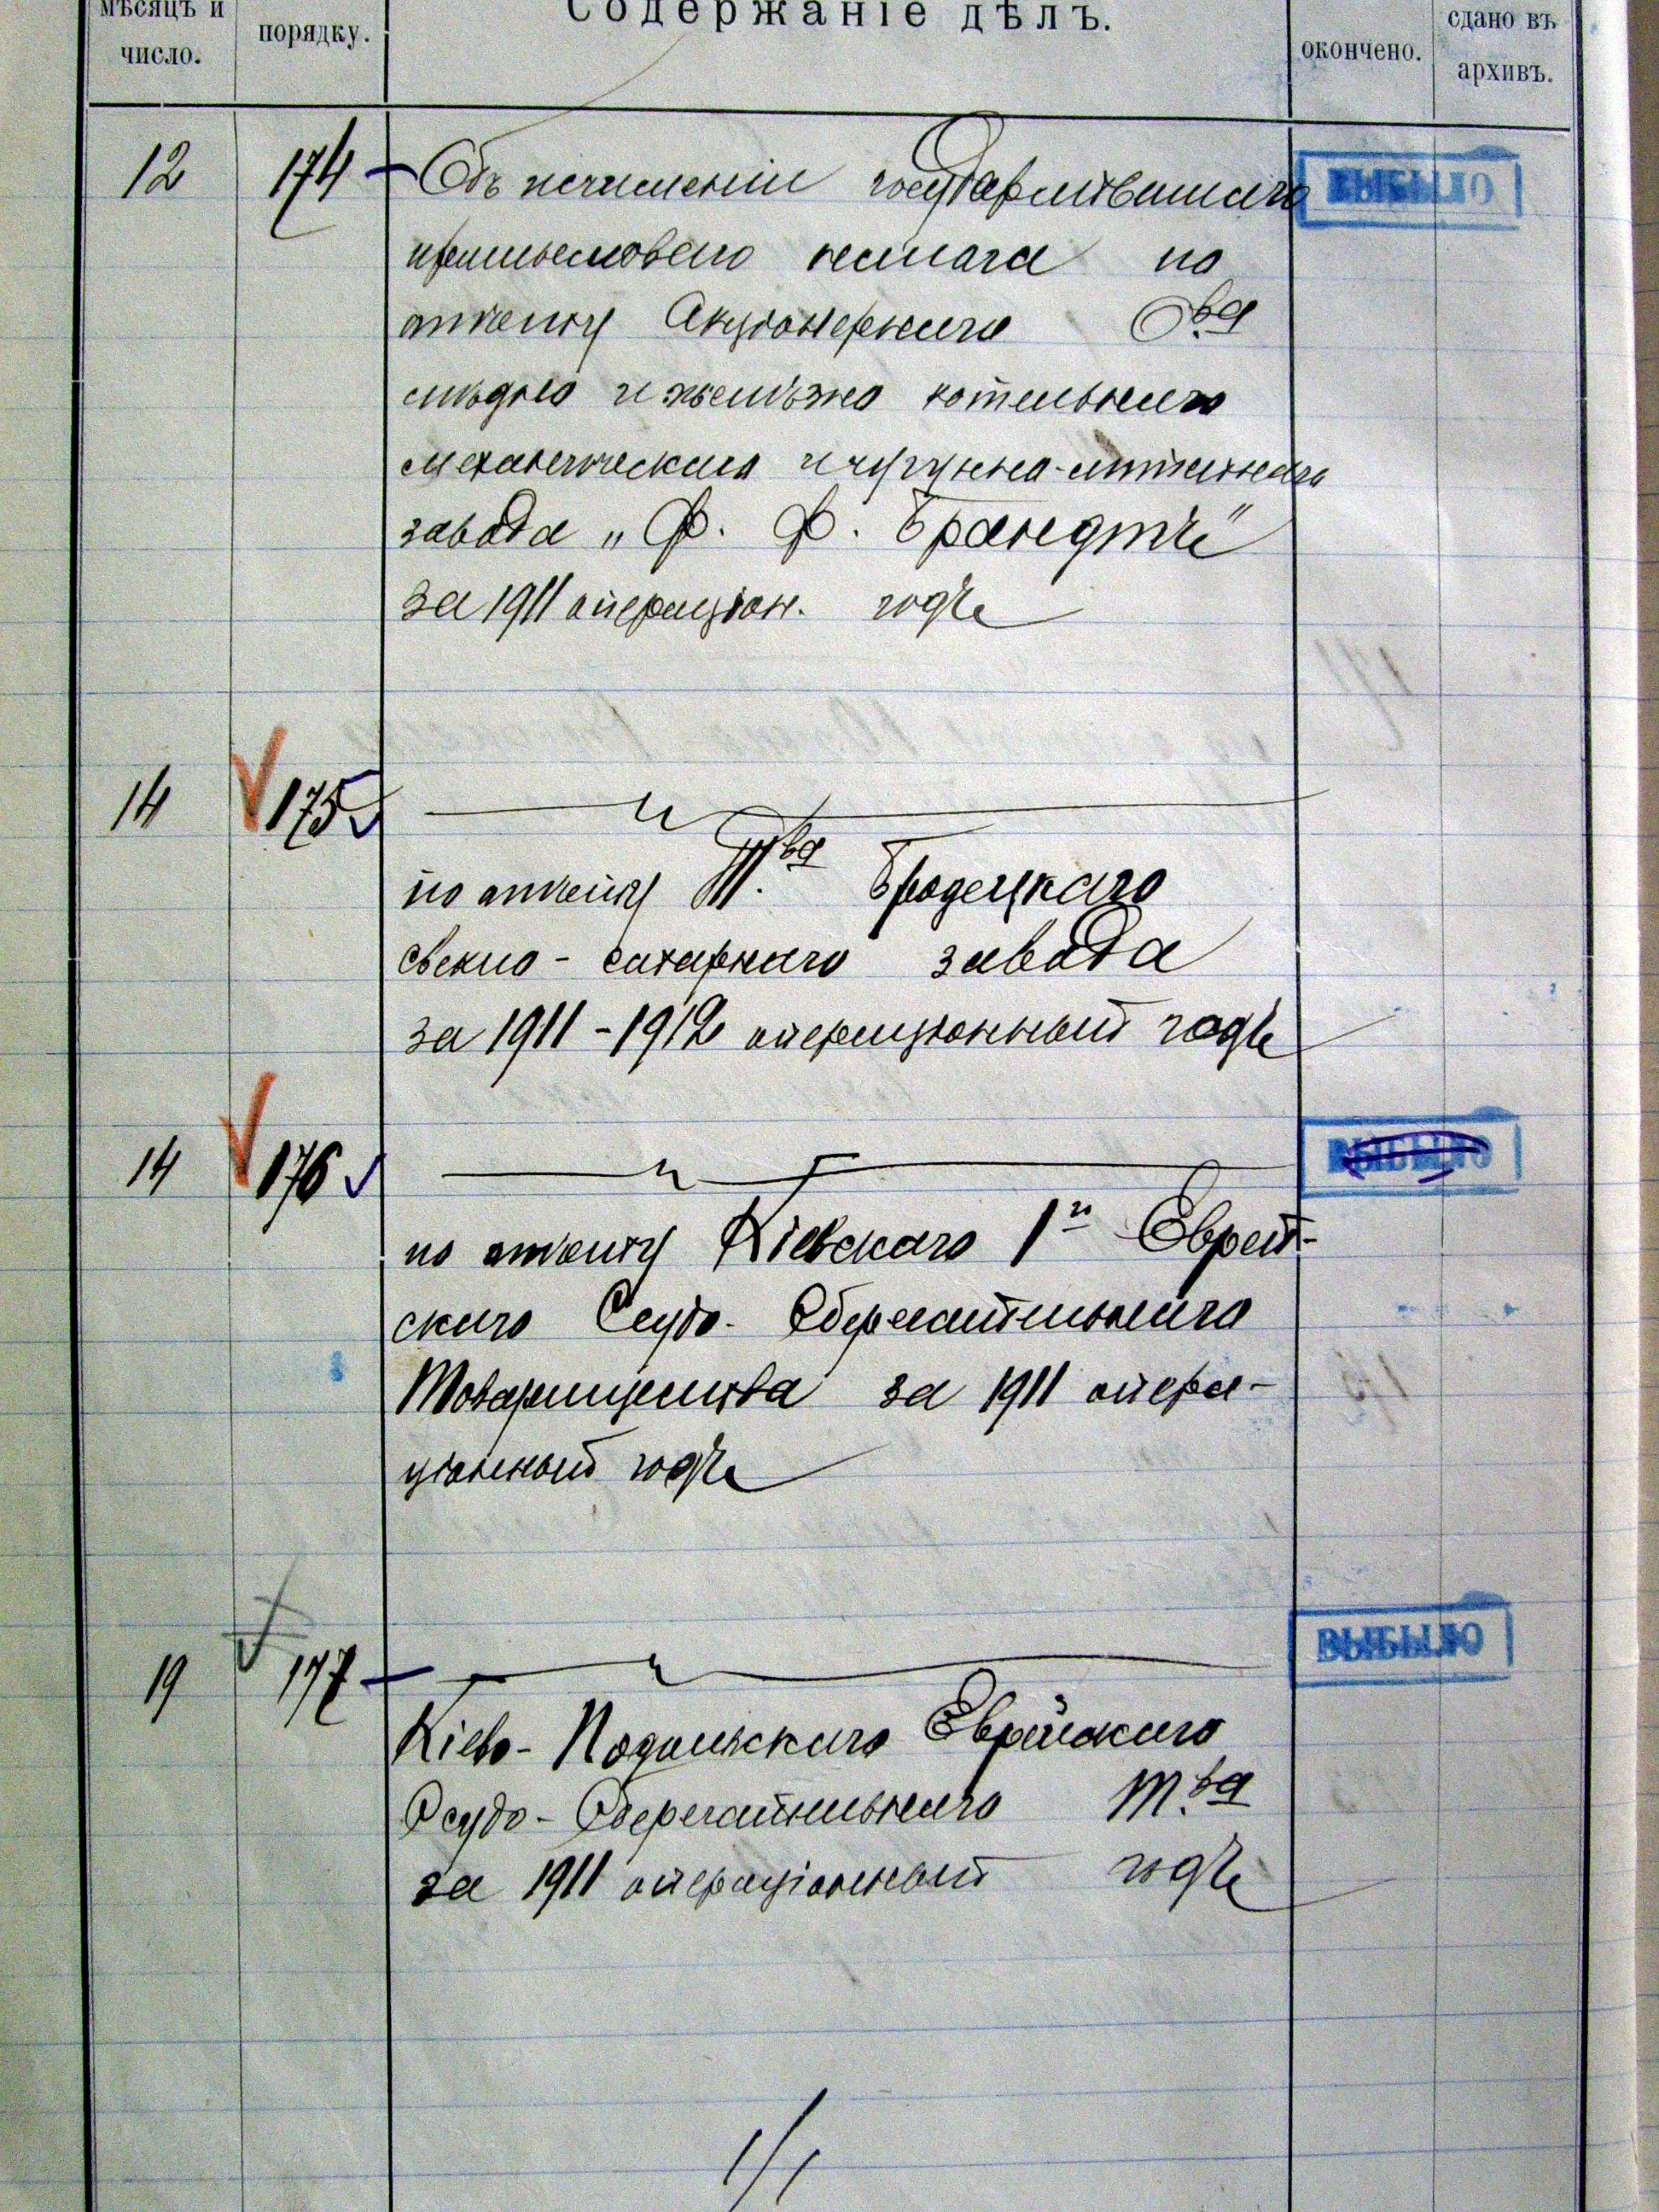 мѣсяцъ и
число.
порядку.
Содержаніе дѣлъ.
окончено.
сдано въ
архивъ.
12 174 Объ исчисленіи государственнаго ВЫБЫЛО
промысловаго налога по
отчету Акціонернаго О-ва
мѣдно и желѣзно котельнаго
механическаго и чугунно-литейнаго
завода „Ф. Ф. Брандтъ"
за 1911 операціон. годъ
14 175 — „ —
по отчету Т-ва Бродецкаго
свекло-сахарнаго завода
за 1911-1912 операціонный годъ
14 176 — „ — ВЫБЫЛО
по отчету Кіевскаго 1го Еврей-
скаго Ссудо-Сберегательнаго
Товарищества за 1911 опера-
ціонный годъ
19 177 — „ — ВЫБЫЛО
Кіево-Подольскаго Еврейскаго
Ссудо-Сберегательнаго Т-ва
за 1911 операціонный годъ